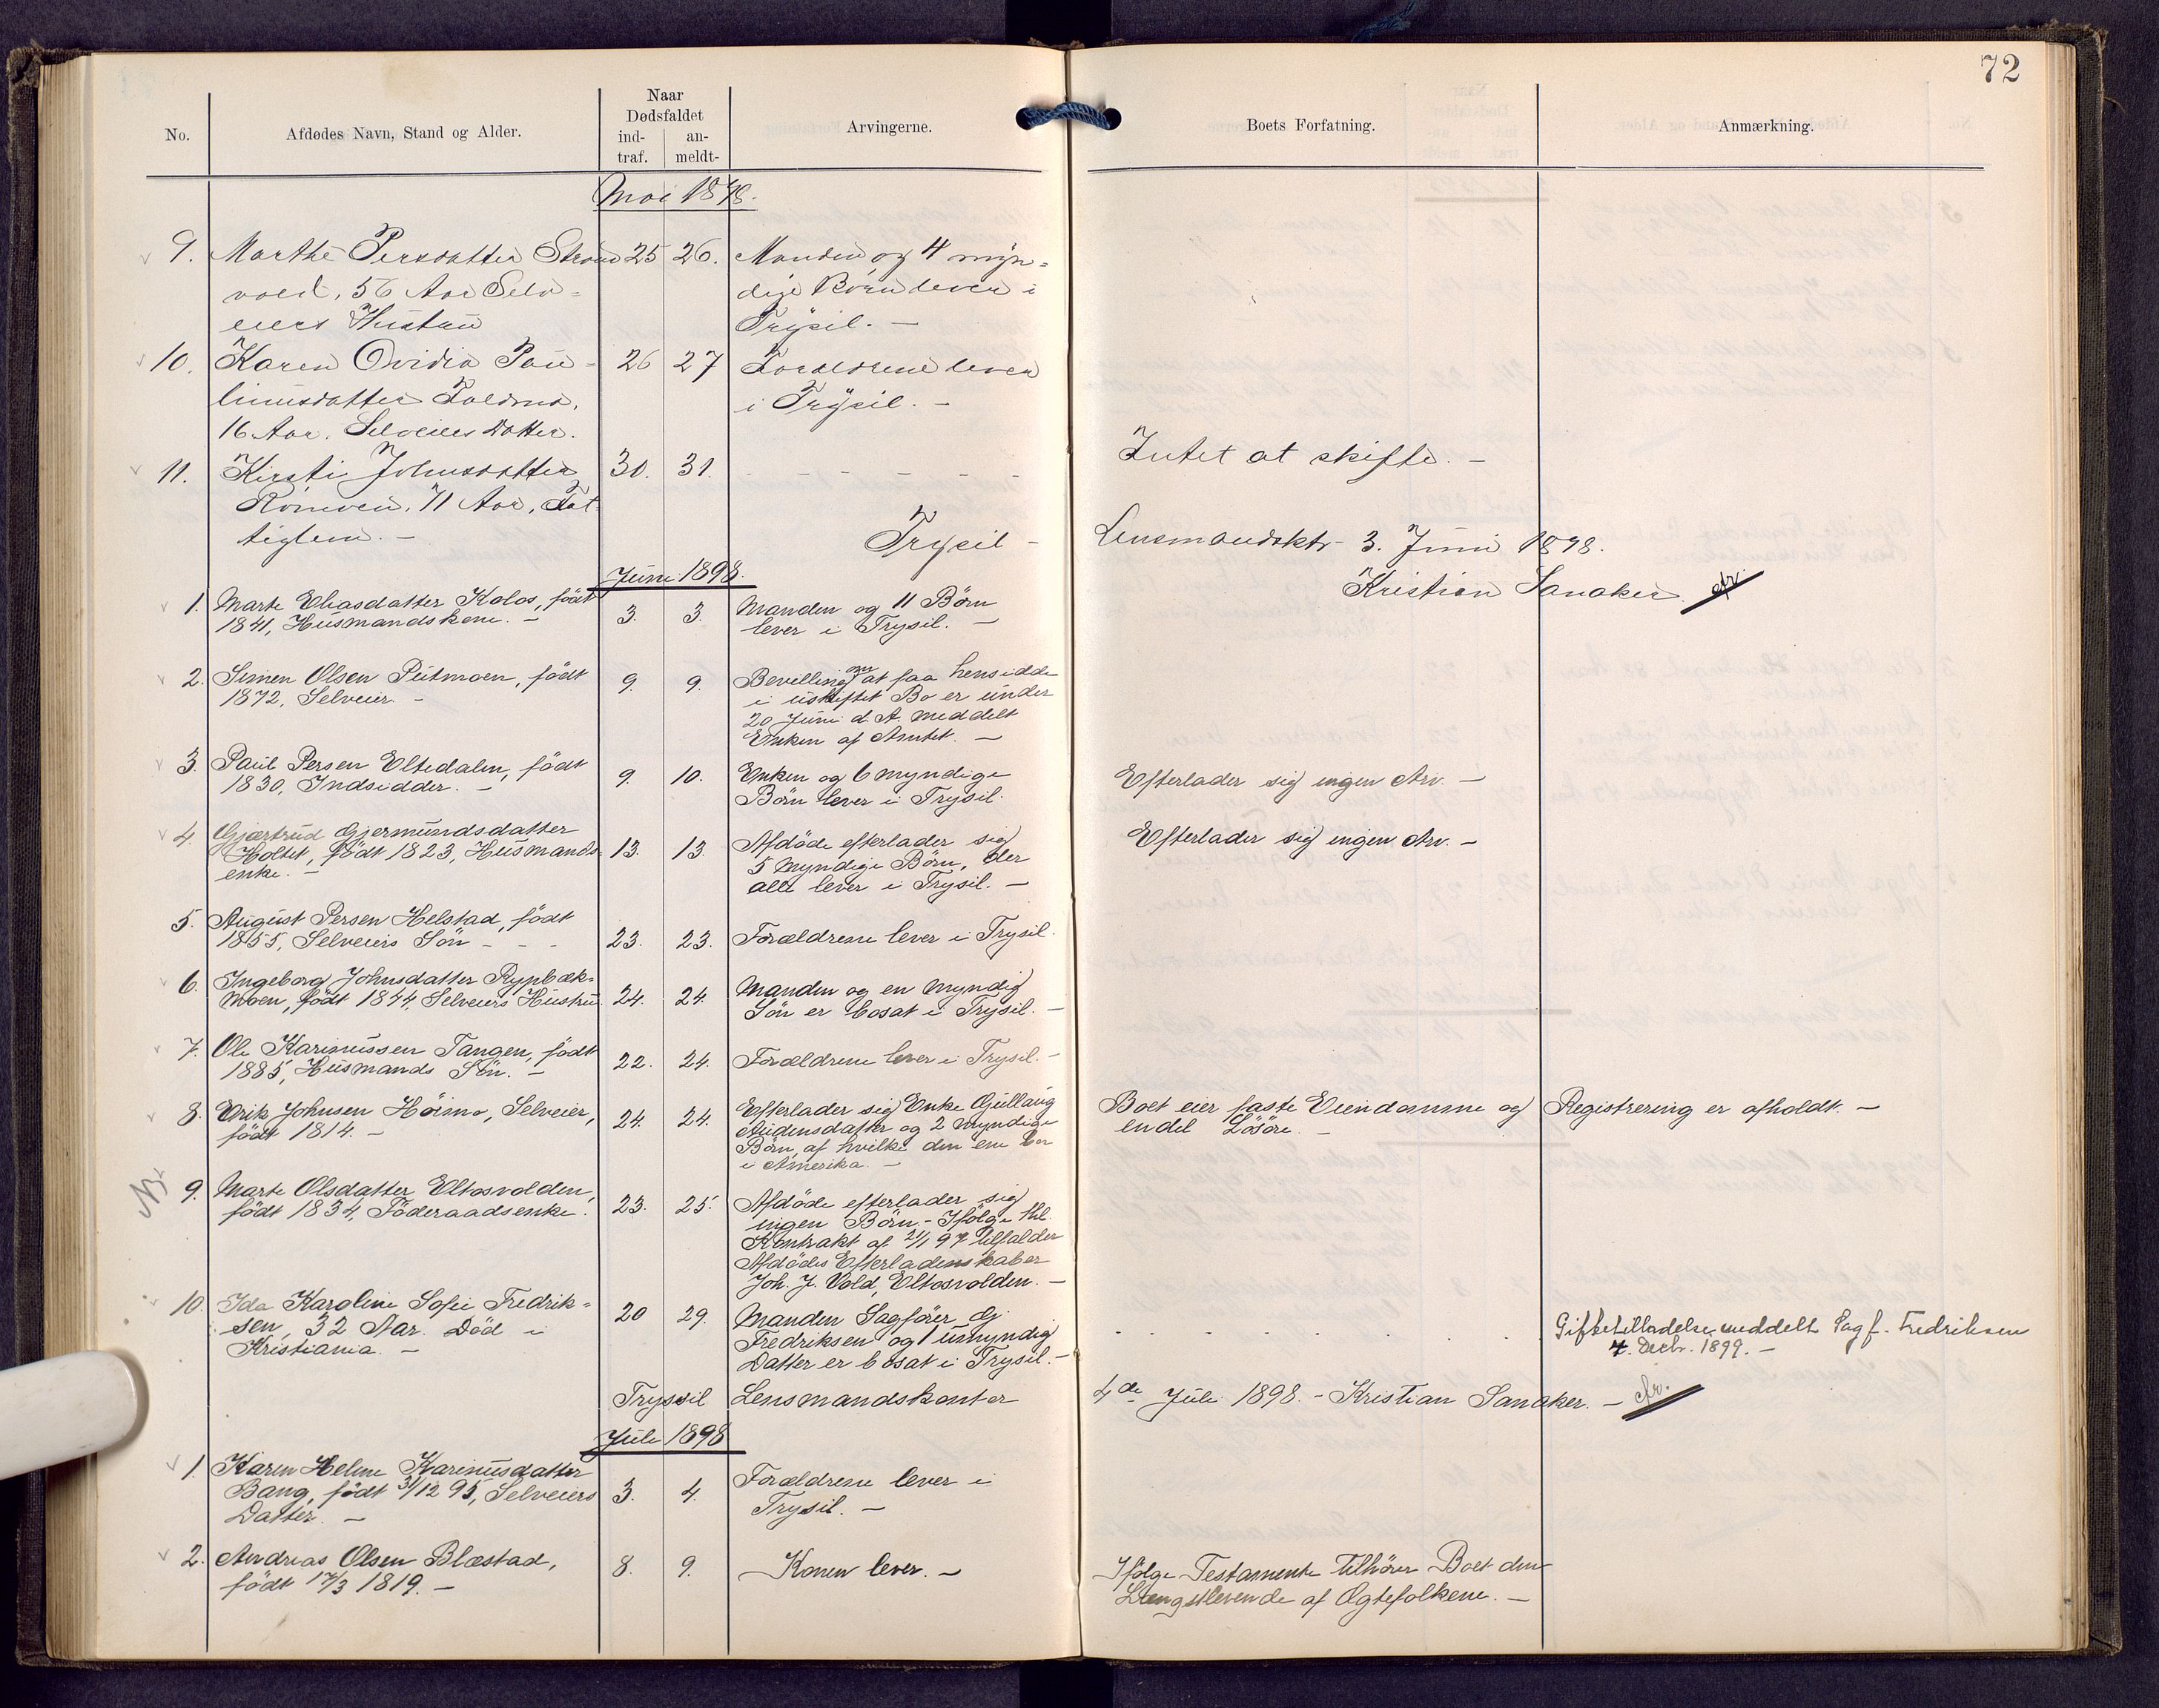 72
No.
Afdødes Navn, Stand og Alder.
Naar
Dødsfaldet
ind-
traf.
an-
meldt-
Arvingerne.
Boets Forfatning.
Anmærkning.
Mai 1898.
9. Marthe Persdatter Strand 25 26. Manden og 4 myn=
vold, 56 Aar Selv= dige Börn lever i
eiers Hustru Trysil. —
10. Karen Ovidia Pau= 26 27 Forældrene lever
linusdatter Foldmo, i Trysil. —
16 Aar. Selveiers Datter.
11. Kirsti Johnsdatter 30. 31. - - - - - Intet at skifte. —
Römoen, 71 Aar, Fat
tiglem. — Trysil - Lensmandsktr 3. Juni 1898.
Kristian Sanaker
Juni 1898.
1. Marte Eliasdatter Kolos, født 3. 3. Manden og 11 Børn
1841, Husmandskone. — lever i Trysil. —
2. Simen Olsen Putmoen, født 9. 9. Bevilling at faa hensidde
1872, Selveier. — i uskiftet Bo er under
20 Juni d. A. meddelt
Enken af Amtet. —
3. Paul Persen Eltedalen, født 9. 10. Enken og 6 myndige Efterlader sig ingen Arv. —
1830, Indsidder. — Børn lever i Trysil.
4. Gjærtrud Gjermundsdatter 13. 13. Afdøde efterlader sig Efterlader sig ingen Arv. —
Holtet, født 1823, Husmands 5 myndige Børn, der
enke. — alle lever i Trysil. —
5. August Persen Helstad, født
1855, Selveiers Søn - - - 23. 23. Forældrene lever i Trysil.
6. Ingeborg Johnsdatter Rypbæk= Manden og en myndig
moen, født 1844, Selveiers Hustru 24. 24. Søn er bosat i Trysil. —
7. Ole Karinussen Tangen, født 22. 24. Forældrene lever i Trysil. —
1885, Husmands Søn. —
8. Erik Johnsen Høimo, Selveier, 24. 24. Efterlader sig Enke Gullaug Boet eier faste Eiendomme og Registrering er afholdt. —
født 1814. — Audensdatter og 2 myndige endel Løsøre. —
Børn, af hvilke den ene bor
i Amerika. —
9. Marte Olsdatter Eltosvolden, 23. 25. Afdøde efterlader sig
født 1834, Føderaadsenke. ingen Børn. - Ifølge thl.
Kontrakt af 21/1 97 tilfalder
Afdødes Efterladenskaber
Joh. J. Vold, Eltosvolden. —
10. Ida Karoline Sofie Fredrik= 20 29. Manden Sagfører Gj. Giftetilladelse meddelt Sagf. Fredriksen
sen, 32 Aar. Død i Fredriksen og 1 umyndig 4. Decbr. 1899. —
Kristiania. — Datter er bosat i Trysil. —
Trysil Lensmandskontor 4de Juli 1898. - Kristian Sanaker. —
Juli 1898
1. Karen Helene Karinusdatter 3. 4. Forældrene lever i
Bang, født 31/12 95, Selveiers Trysil. —
Datter. —
2. Andreas Olsen Blæstad, 8. 9. Konen lever. — Ifølge Testamente tilhører Boet den
født 17/3 1819. — Længstlevende af Ægtefolkene. —